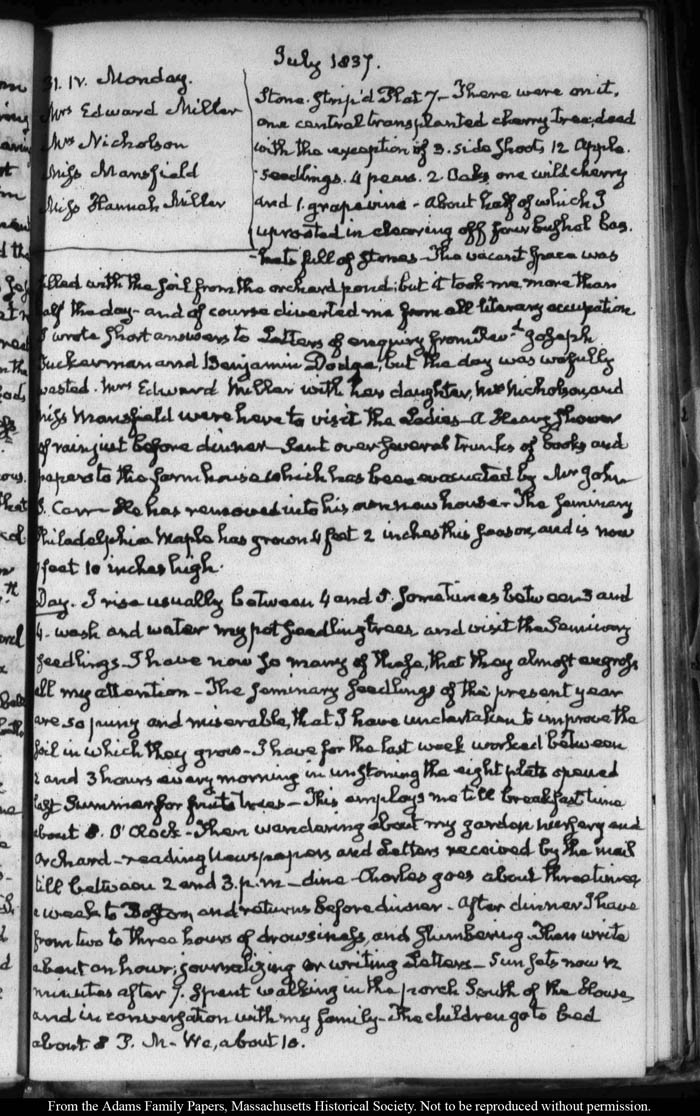 July 1837.
31. IV. Monday.
Mrs Edward Miller
Mrs Nicholson
Miss Mansfield
Miss Hannah Miller
Stone. Strip'd Plat 7 - There were on it,
one central transplanted cherry tree, dead
with the exception of 3. side shoots 12 Apple.
seedlings. 4 pears. 2 Oaks one wild cherry
and 1. grapevine - About half of which I
uprooted in clearing off four bushel bas-
-kets full of stones - The vacant space was
filled with the soil from the orchard pond; but it took me more than
half the day - and of course diverted me from all literary occupation
I wrote short answers to Letters of enquiry from Revd. Joseph
Tuckerman and Benjamin Dodge, but the day was wofully
wasted. Mrs Edward Miller with her daughter, Mrs Nicholson, and
Miss Mansfield were here to visit the Ladies - A Heavy shower
of rain just before dinner - Sent over several trunks of books and
papers to the farm house which has been evacuated by Mr John
Carr - He has removed into his own new house - The Seminary
Philadelphia Maple has grown 4 feet 2 inches this season, and is now
feet 10 inches high.
Day. I rise usually between 4 and 5. sometimes between 3 and
4. wash and water my pot seedling trees and visit the Seminary
seedlings - I have now so many of these, that they almost engross
all my attention - The seminary seedlings of the present year
are so puny and miserable, that I have undertaken to improve the
soil in which they grow - I have for the last week worked between
2 and 3 hours every morning in unstoning the eight plats opened
last Summer for fruit trees - This employs me till breakfast time
about 8. O'Clock - Then wandering about my garden nursery and
Orchard - reading Newspapers and Letters received by the mail
till between 2 and 3. p.m - dine - Charles goes about three times
a week to Boston, and returns before dinner - After dinner I have
from two to three hours of drowsiness, and slumbering - Then write
about an hour; journalizing or writing Letters - Sun sets now 12
minutes after 7. Spent walking in the porch South of the House,
and in conversation with my family - The children go to bed
about 8 P. M - We, about 10.
From the Adams Family Papers, Massachusetts Historical Society. Not to be reproduced without permission.